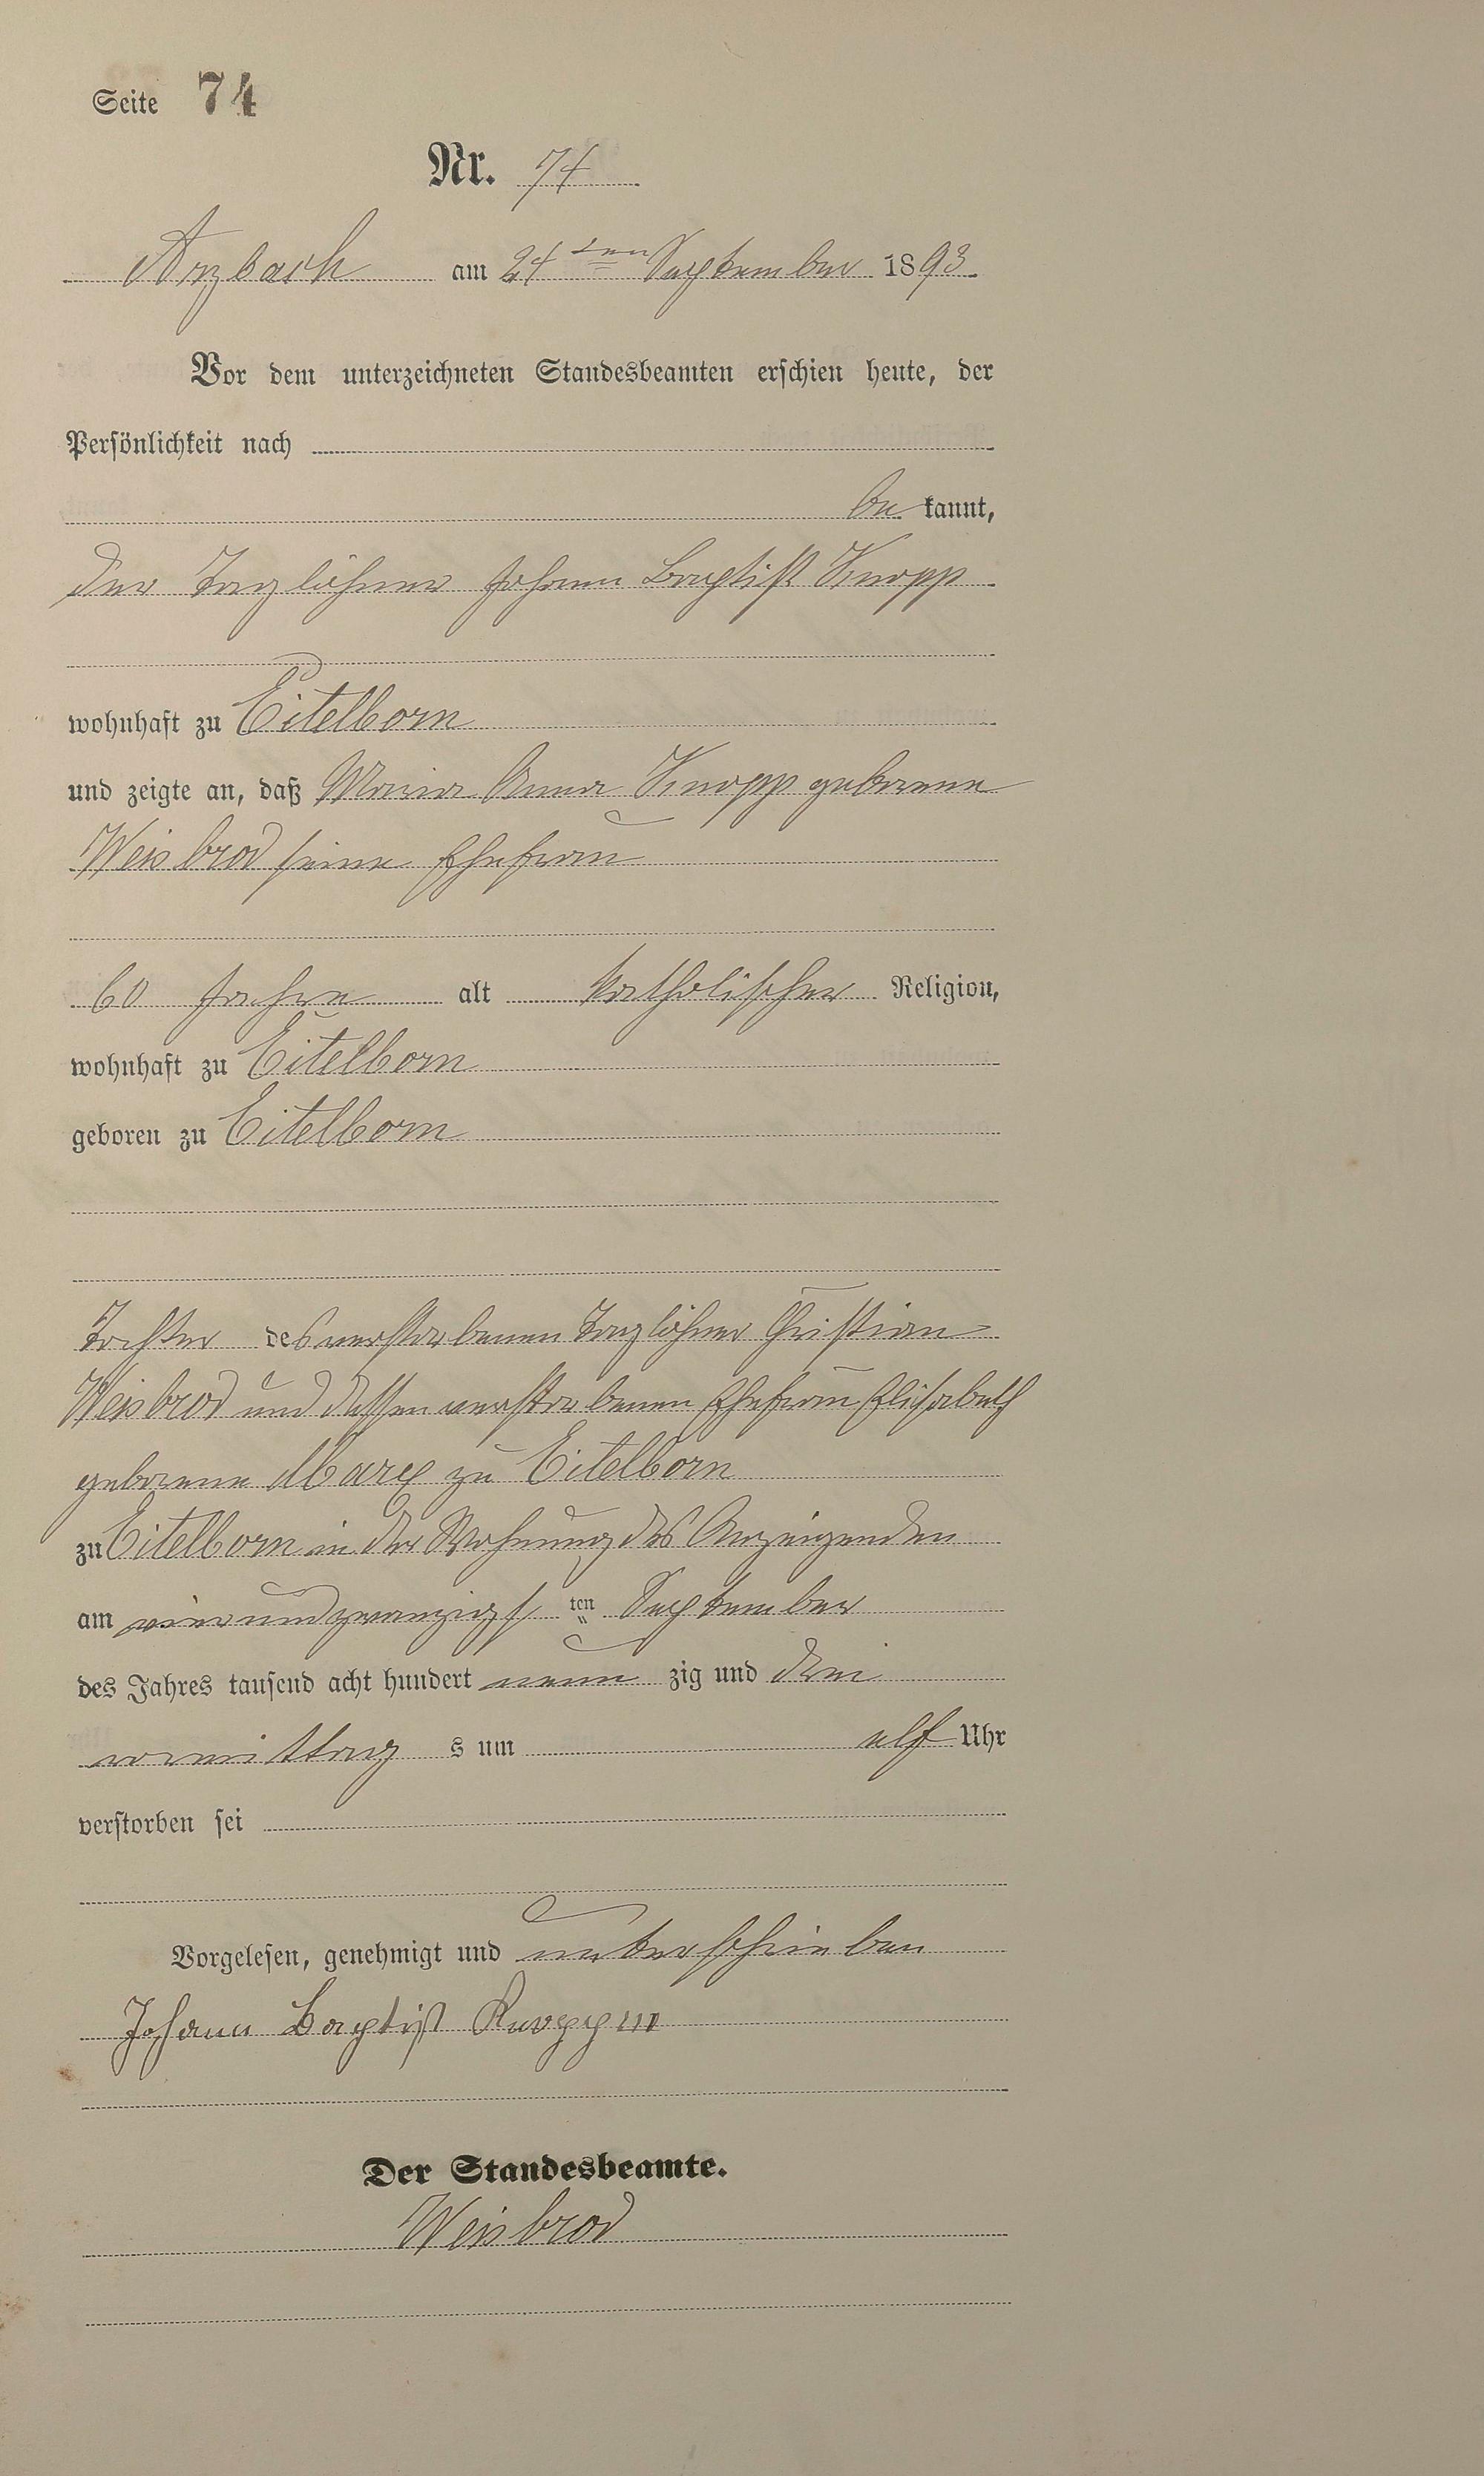 Seite 74
Nr. 74
Arzbach am 24ten September 1893
Vor dem unterzeichneten Standesbeamten erschien heute, der
Persönlichkeit nach
be kannt,
der Taglöhner Johann Baptist Knopp
wohnhaft zu Eitelborn
und zeigte an, daß Maria Anna Knopp geborene
Weisbrod seine Ehefrau
60 Jahre alt katholischer Religion,
wohnhaft zu Eitelborn
geboren zu Eitelborn
Tochter des verstorbenen Taglöhner Christian
Weisbrod und dessen verstorbenen Ehefrau Elisabeth
geborene Marx zu Eitelborn
zu Eitelborn in der Wohnung des Anzeigenden
am vierundzwanzigsten September
des Jahres tausend acht hundert neun zig und drei
vormittag s um elf Uhr
verstorben sei
Vorgelesen, genehmigt und unterschrieben
Johann Baptist Knopp III
Der Standesbeamte.
Weisbrod